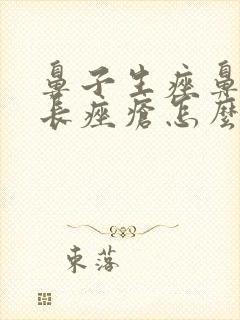 鼻子生痤鼻
長痤瘡怎麼
東落